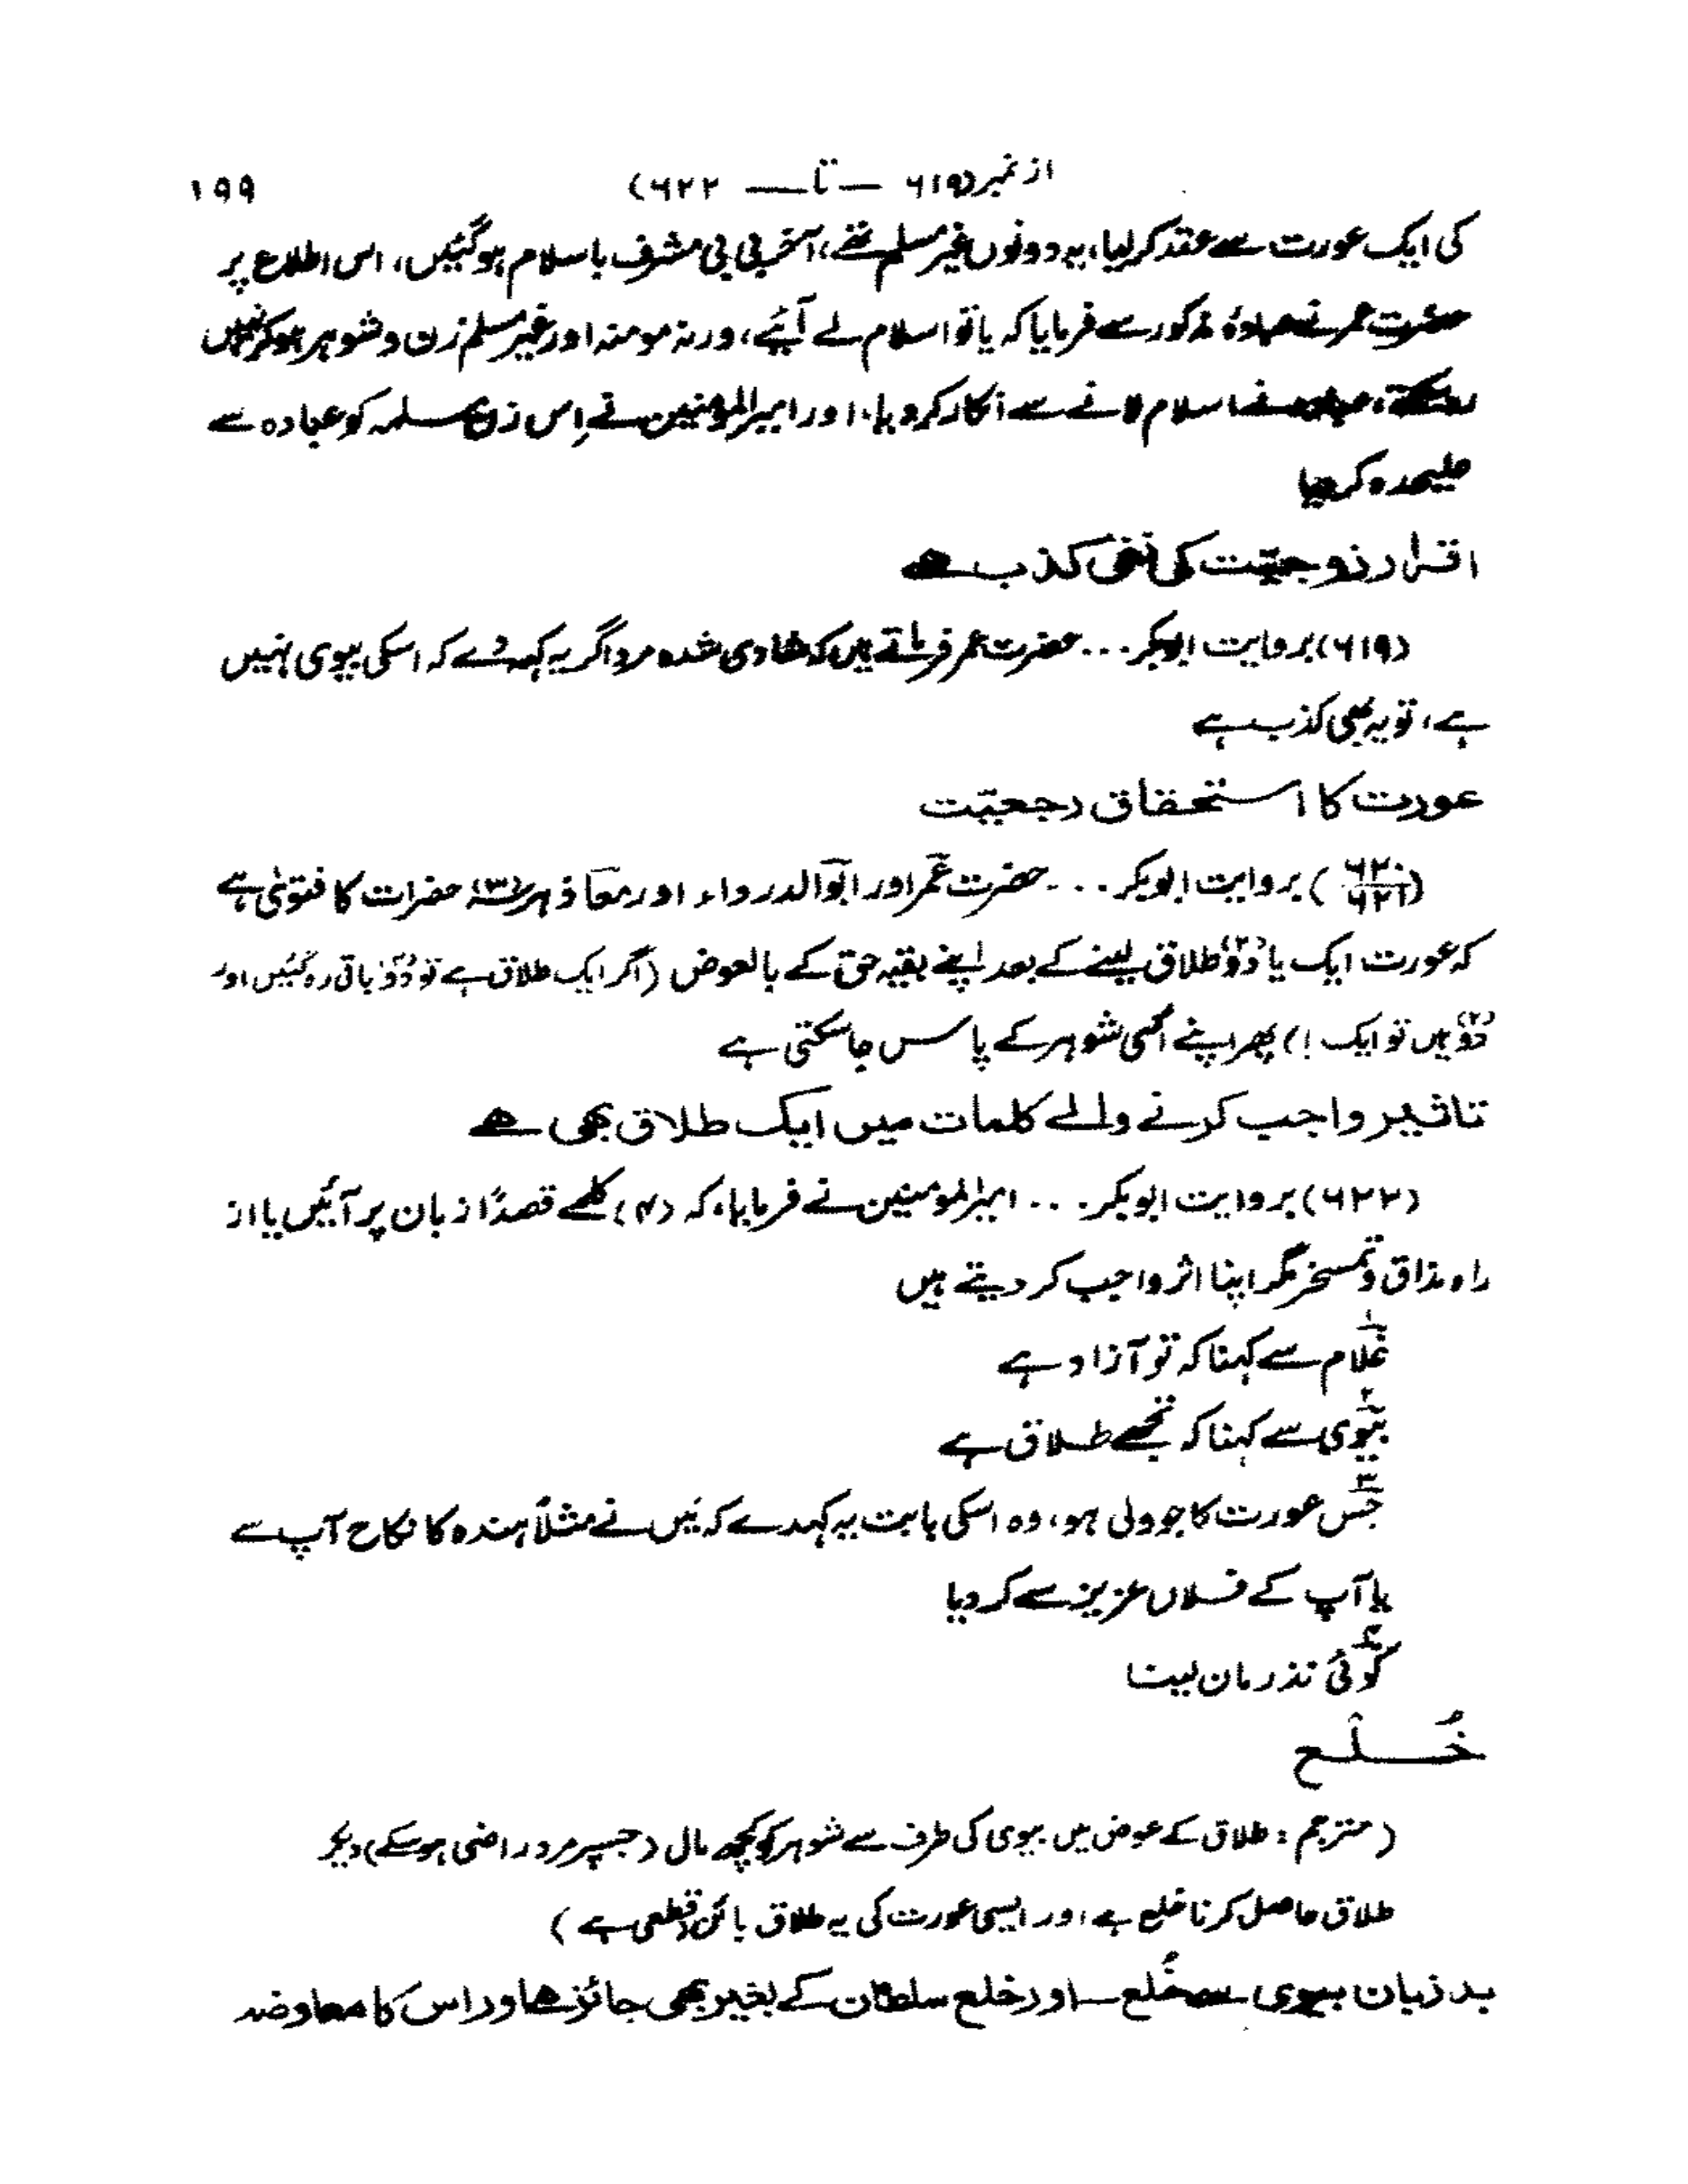 از نمبر (۶۱۹ — تا — ۶۲۲) ۱۹۹
کی ایک عورت سے عقد کر لیا، یہ دونوں غیر مسلم تھے، آخر بی بی مشرف باسلام ہوگئیں، اس اطلاع پر
حضرت عمر نے عبادۂ مذکور سے فرمایا کہ یا تو اسلام لے آئیے، ورنہ مومنہ اور غیر مسلم زن و شوہر ہوکر نہیں
رہ سکتے، عبادہ نے اسلام لانے سے انکار کر دیا، اور امیر المومنین نے اِس زن مسلمہ کو عبادہ سے
علیحدہ کر دیا
اقرار زوجیّت کی نفی کذب ہے
(۶۱۹) بروایت ابوبکر... حضرت عمر فرماتے ہیں کہ شادی شدہ مرد اگر یہ کہہ دے کہ اسکی بیوی نہیں
ہے، تو یہ بھی کذب ہے
عورت کا استحقاق رجعیّت
(۶۲۰/۶۲۱) بروایت ابوبکر... حضرت عمر اور ابوالدرداء اور معاذ ہر سہ (۳) حضرات کا فتویٰ ہے
کہ عورت ایک یا دو (۲) طلاق لینے کے بعد اپنے بقیہ حق کے بالعوض (اگر ایک طلاق ہے تو دو (۲) باقی رہ گئیں اور
دو (۲) ہیں تو ایک !) پھر اپنے اُسی شوہر کے پاس جا سکتی ہے
تاثیر واجب کرنے والے کلمات میں ایک طلاق بھی ہے
(۶۲۲) بروایت ابوبکر... امیر المومنین نے فرمایا، کہ (۴) کلمے قصدًا زبان پر آئیں یا از
راہ مذاق و تمسخر مگر اپنا اثر واجب کر دیتے ہیں
۱ غلام سے کہنا کہ تو آزاد ہے
۲ بیوی سے کہنا کہ تجھے طلاق ہے
۳ جس عورت کا جو ولی ہو، وہ اسکی بابت یہ کہدے کہ میں نے مثلاً ہندہ کا نکاح آپ سے
یا آپ کے فلاں عزیز سے کر دیا
۴ کوئی نذر مان لینا
خُلع
(مترجم : طلاق کے عوض میں بیوی کی طرف سے شوہر کو کچھ مال (جسپر مرد راضی ہو سکے) دیکر
طلاق حاصل کرنا خلع ہے، اور ایسی عورت کی یہ طلاق بائن قطعی ہے)
بد زبان بیوی سے خُلع - اور خلع سلطان کے بغیر بھی جائز ہے اور اس کا معاوضہ